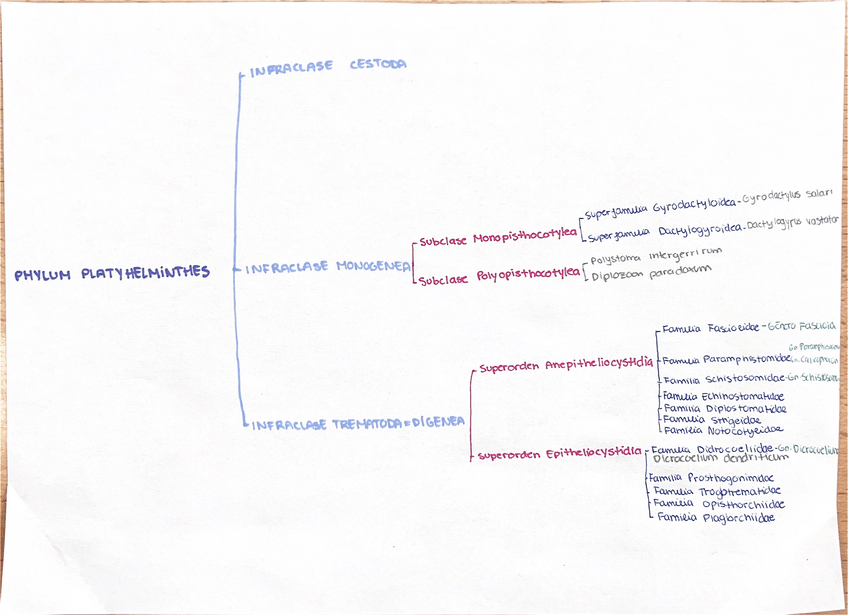 INFRACLASE CESTODA
PHYLUM PLATYHELMINTHES
INFRACLASE MONOGENEA
Subclase Monopisthocotylea
Superfamilia Gyrodactyloidea - Gyrodactylus salari
Superfamilia Dactylogyroidea - Dactylogyrus vastator
Subclase Polyopisthocotylea
Polystoma intergerrirum
Diplozoon paradoxum
INFRACLASE TREMATODA = DIGENEA
Superorden Anepitheliocystidia
Familia Fascioeidae - Género Fasciola
Familia Paramphistomidae
Gn Paramphistom
Familia Schistosomidae - Gn Schistosom
Familia Echinostomatidae
Familia Diplostomatidae
Familia Strigeidae
Familia Notocotyeidae
Superorden Epitheliocystidia
Familia Didrocoeliidae - Gn. Dicrocoelium
Dicrocoelium dendriticum
Familia Prosthogonimidae
Familia Trogotrematidae
Familia Opisthorchiidae
Familia Plagiorchiidae